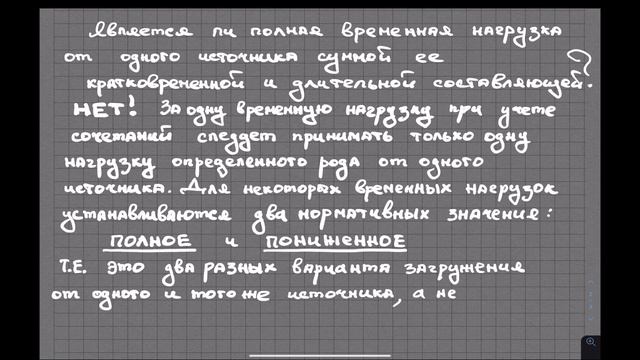 Является ли полная временная нагрузка
от одного источника суммой ее
кратковременной и длительной составляющей?
НЕТ! За одну временную нагрузку при учете
сочетаний следует принимать только одну
нагрузку определенного рода от одного
источника. Для некоторых временных нагрузок
устанавливаются два нормативных значения:
ПОЛНОЕ и ПОНИЖЕННОЕ
Т.Е. это два разных варианта загружения
от одного и того же источника, а не